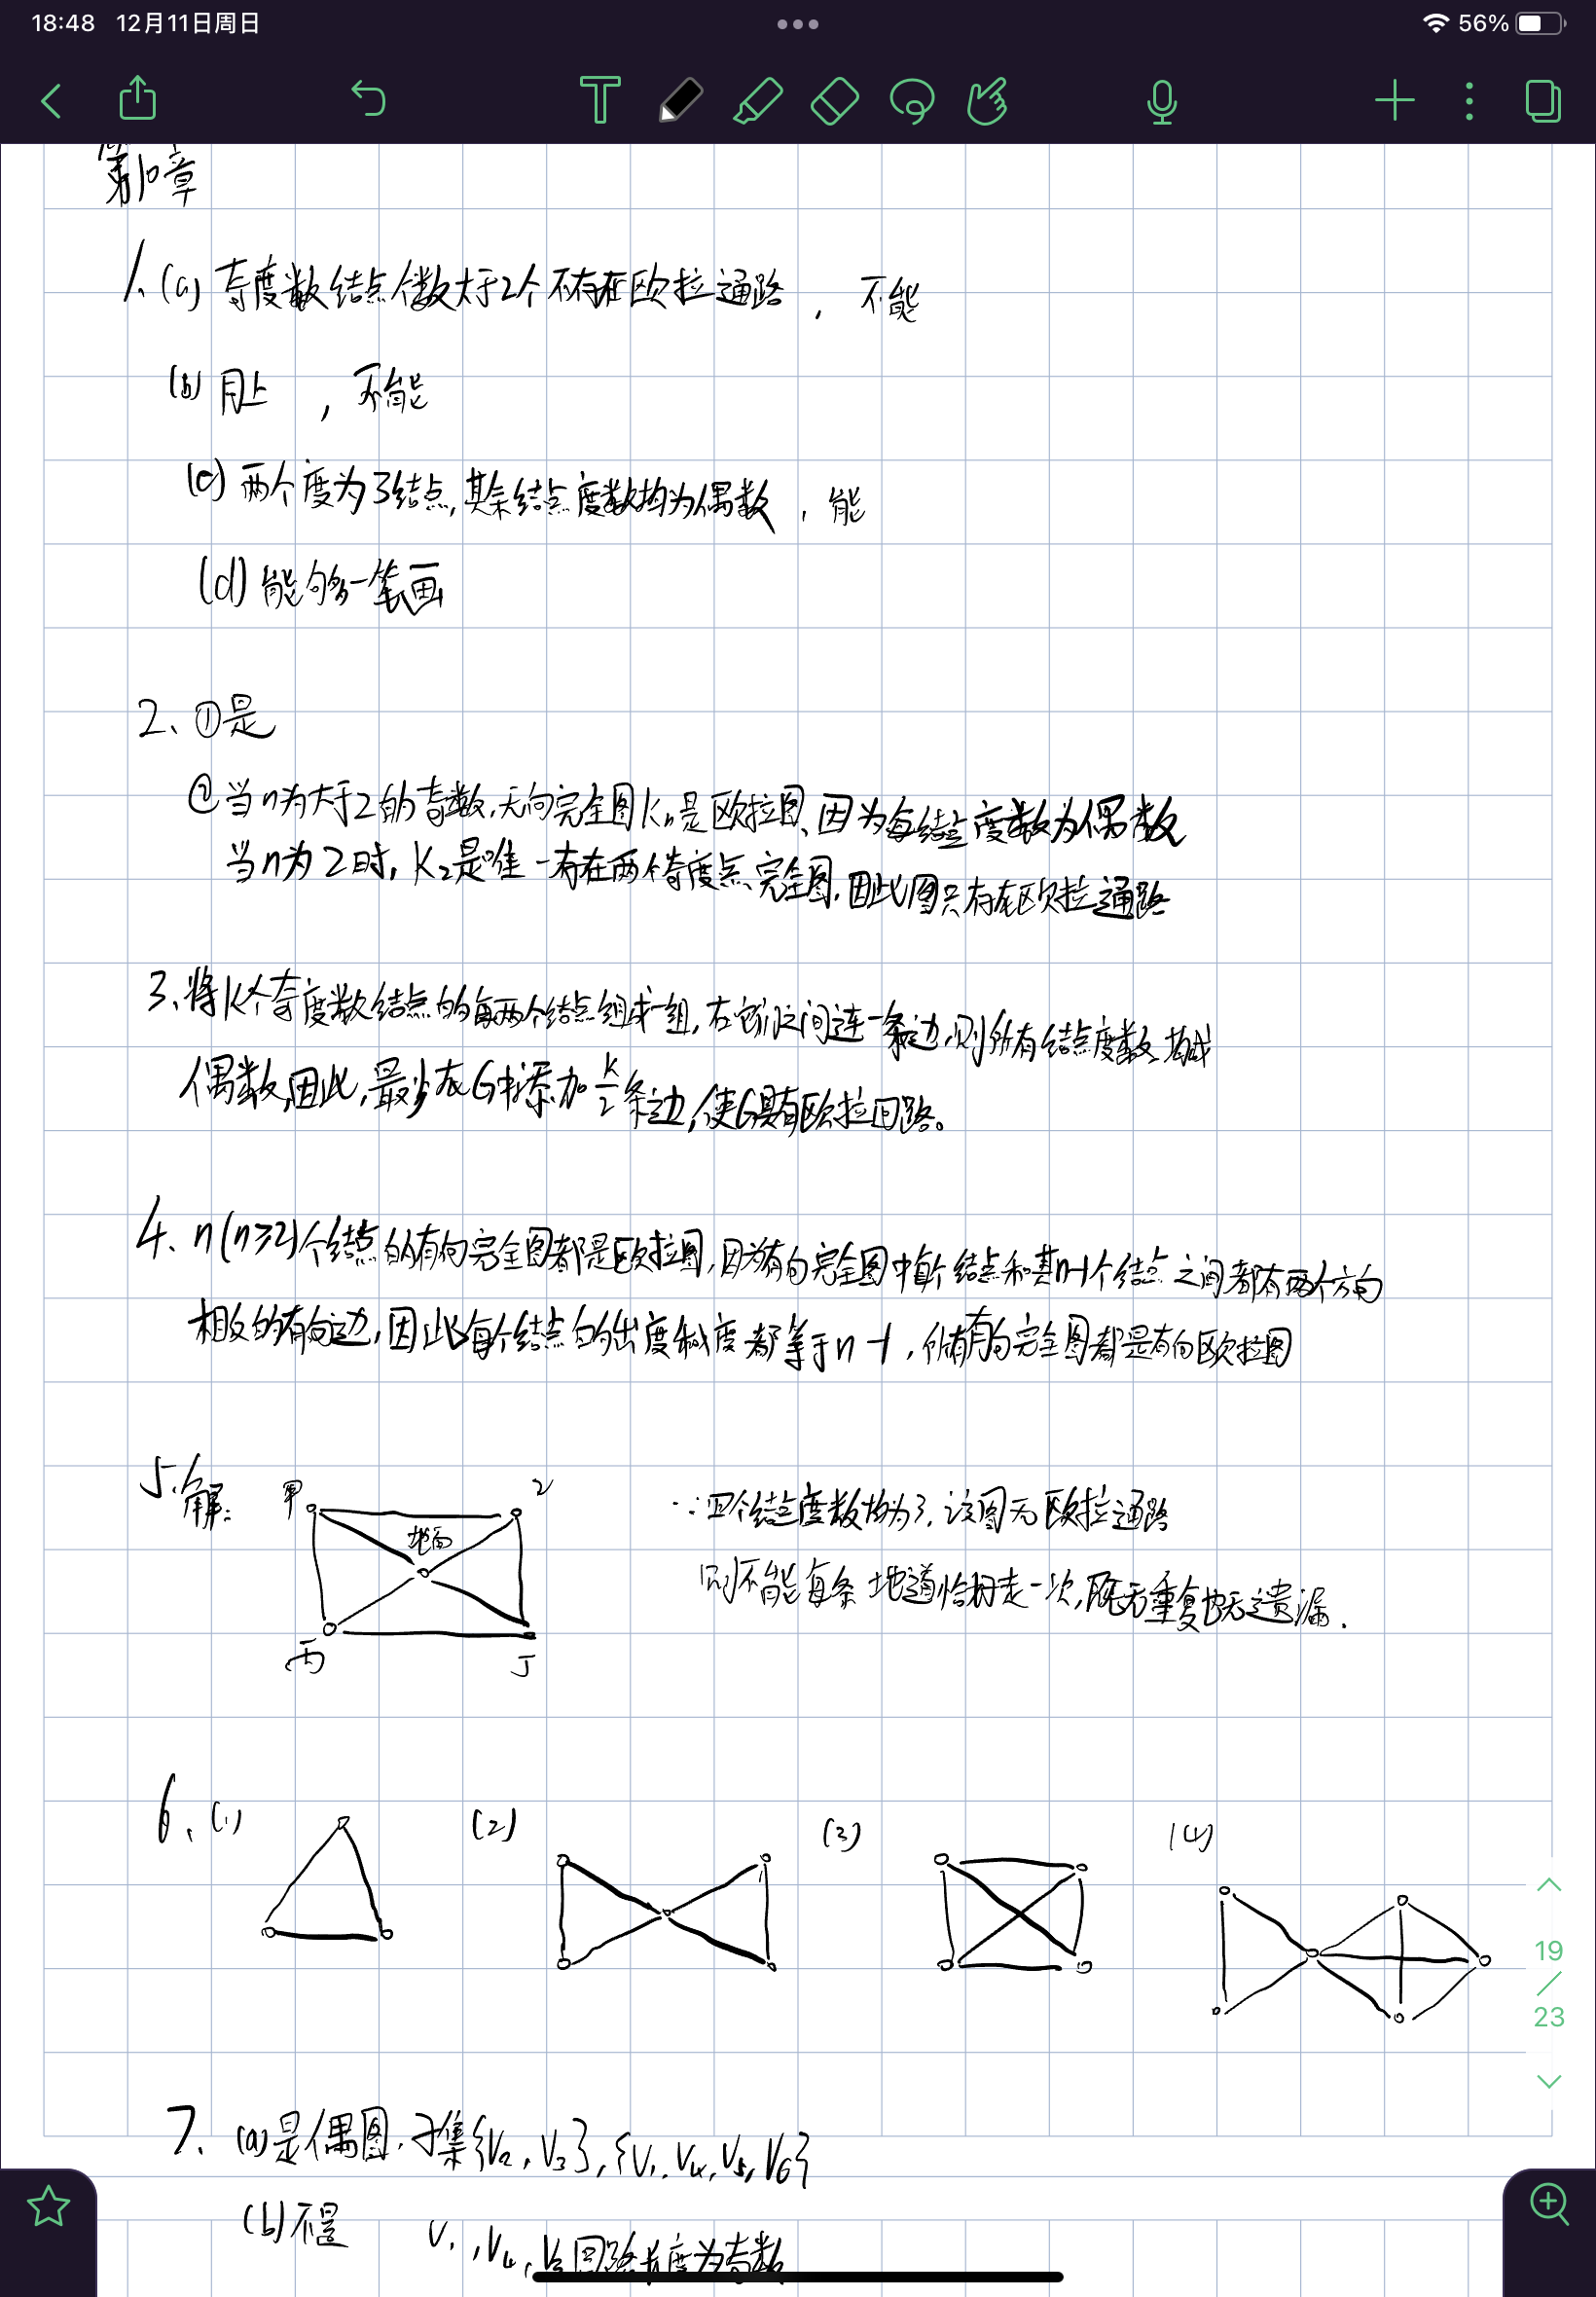 18:48 12月11日周日
56%
第10章
1、(a) 奇度数结点个数大于2个不存在欧拉通路，不能
(b) 同上，不能
(c) 两个度为3结点,其余结点度数均为偶数，能
(d) 能够一笔画
2、①是
②当n为大于2的奇数,无向完全图Kn是欧拉图、因为每结点度数为偶数
当n为2时，K2是唯一存在两个奇度点完全图,因此图只存在欧拉通路
3、将K个奇度数结点的每两个结点组成一组,在它们之间连一条边,则所有结点度数均成
偶数,因此,最少在G中添加K/2条边,使G具有欧拉回路。
4、n(n≥2)个结点的有向完全图都是欧拉图,因为有向完全图中每个结点和其n-1个结点之间都有两个方向
相反的有向边,因此每个结点的出度和入度都等于n-1,所有有向完全图都是有向欧拉图
5.解:
甲 乙
地面
丙 丁
∵四个结点度数均为3,该图无欧拉通路
则不能每条地道恰好走一次,既无重复也无遗漏.
6、(1) (2) (3) (4)
19
23
7、(a)是偶图,子集{V2,V3},{V1,V4,V5,V6}
(b)不是 V1,V4,回路长度为奇数